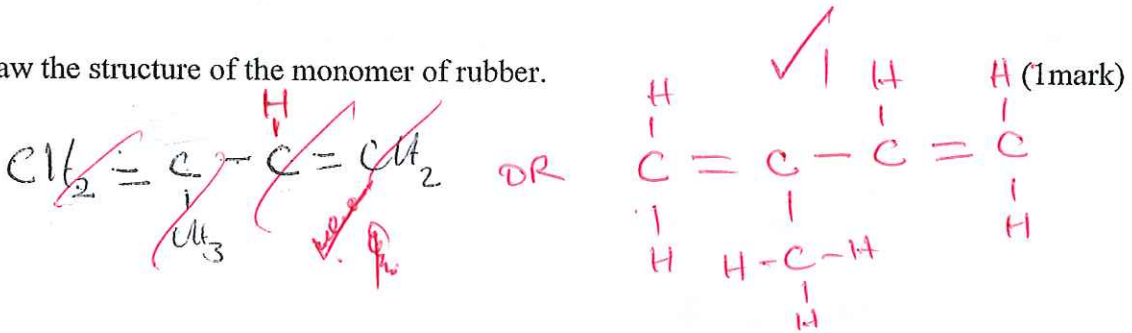 aw the structure of the monomer of rubber. (1mark)
H
CH2 = C - C = CH2
CH3
OR
H H H
C = C - C = C
H H
H-C-H
H